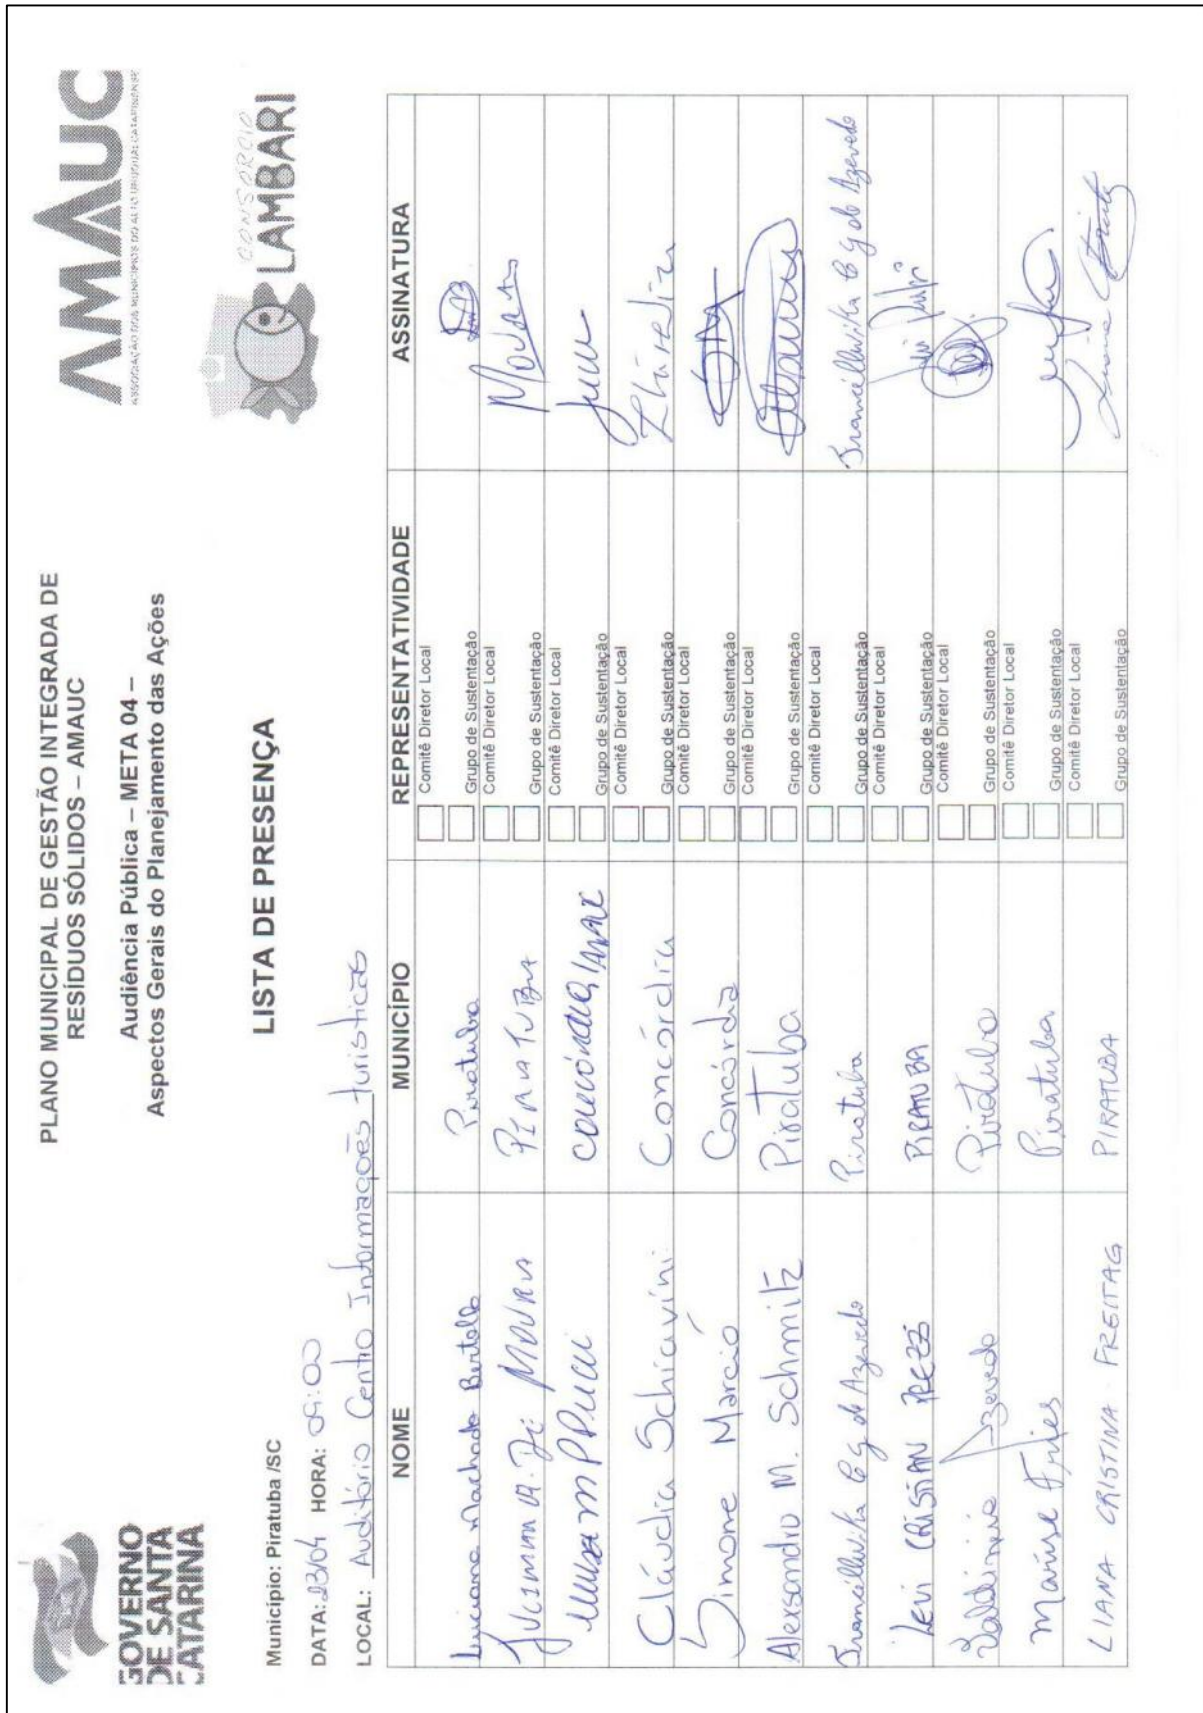 GOVERNO
DE SANTA
CATARINA
PLANO MUNICIPAL DE GESTÃO INTEGRADA DE
RESÍDUOS SÓLIDOS – AMAUC
Audiência Pública – META 04 –
Aspectos Gerais do Planejamento das Ações
AMAUC
ASSOCIAÇÃO DOS MUNICÍPIOS DO ALTO URUGUAI CATARINENSE
CONSÓRCIO
LAMBARI
LISTA DE PRESENÇA
Município: Piratuba /SC
DATA: 23/04 HORA: 09:00
LOCAL: Auditório Centro Informações Turísticas
NOME MUNICÍPIO REPRESENTATIVIDADE ASSINATURA
Luciana Machado Bertollo Piratuba Comitê Diretor Local
Grupo de Sustentação
Jucimar A. De Moura Piratuba Comitê Diretor Local
Grupo de Sustentação
Concórdia Comitê Diretor Local
Grupo de Sustentação
Cláudia Schiavini Concórdia Comitê Diretor Local
Grupo de Sustentação
Simone Marció Concórdia Comitê Diretor Local
Grupo de Sustentação
Alexsandro M. Schmitz Piratuba Comitê Diretor Local
Grupo de Sustentação
de Azevedo Piratuba Comitê Diretor Local de Azevedo
Grupo de Sustentação
Levi Cristian Piratuba Comitê Diretor Local
Grupo de Sustentação
Azevedo Piratuba Comitê Diretor Local
Grupo de Sustentação
Marise Fries Piratuba Comitê Diretor Local
Grupo de Sustentação
LIANA CRISTINA FREITAG PIRATUBA Comitê Diretor Local
Grupo de Sustentação